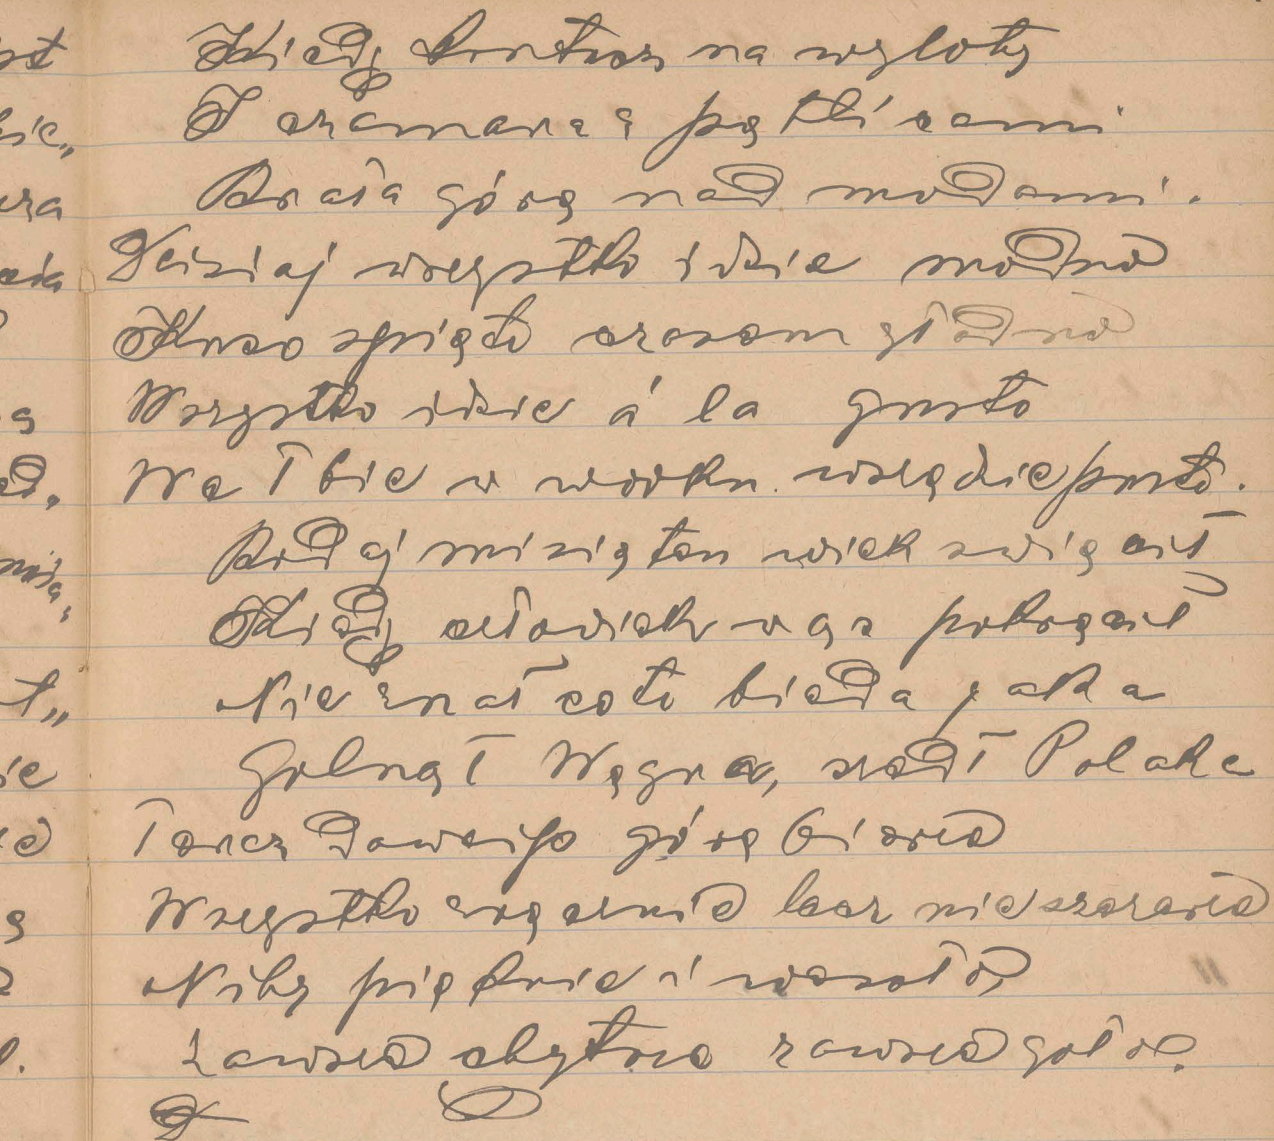 Kiedy kontusz na wyloty
I czamara z pętlicami
Brała górę nad modami.
Dzisiaj wszystko idzie modno
Kuso spięto czasem głodno
Wszystko idzie á la gusto
We łbie w worku wszędzie pusto.
Bodaj mi się ten wiek święcił
Kiedy człowiek wąs pokręcił
Nie znał co to bieda jaka
Golnął Węgra, siadł Polaka
Teraz dowcip górę bierze
Wszystko zręcznie lecz nieszczerze
Niby pięknie i wesoło,
Zawsze chytrze zawsze goło.